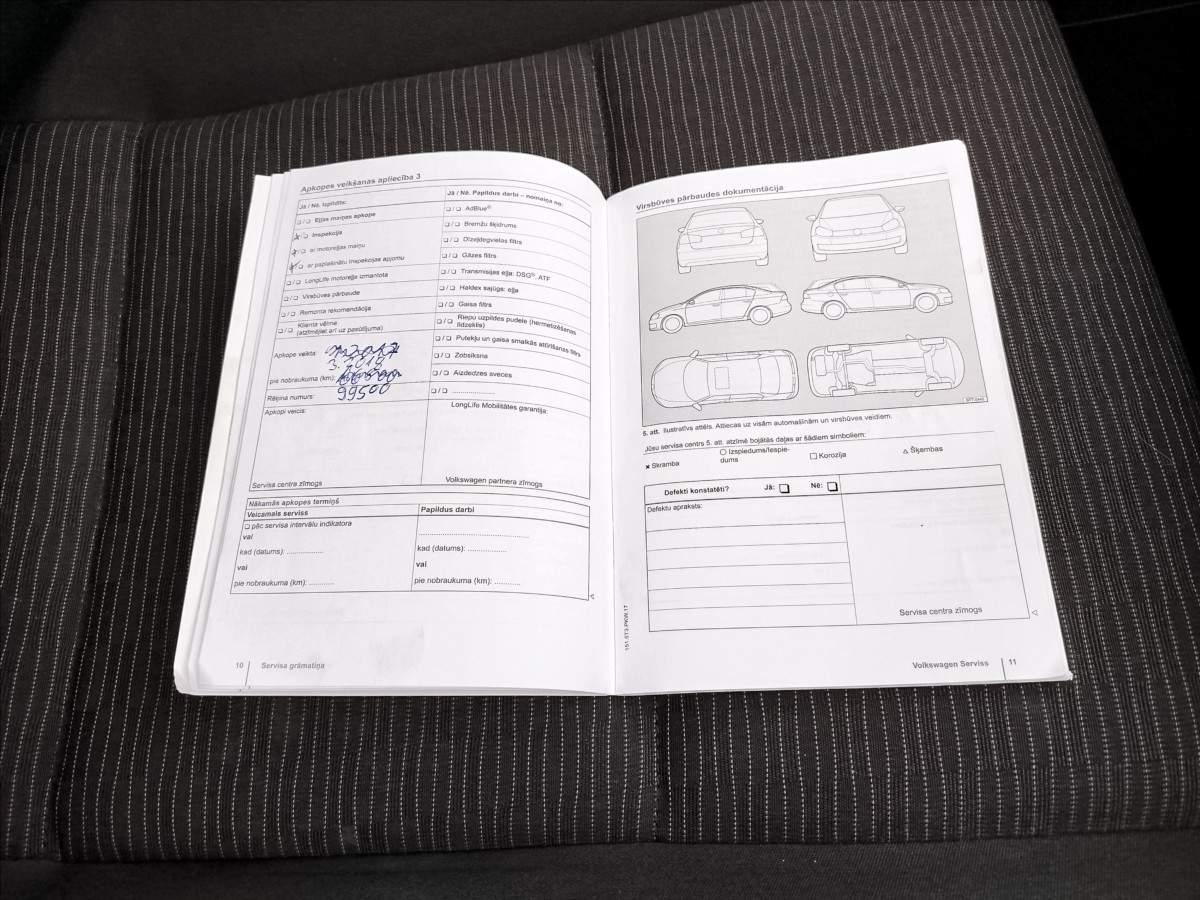 Apkopes veikšanas apliecība 3
Jā / Nē. Izpildīts:
❏ / ❏ Eļļas maiņas apkope
❏ Inspekcija
❏ ar motoreļļas maiņu
❏ ar paplašinātu inspekcijas apjomu
❏ / ❏ LongLife motoreļļa izmantota
❏ / ❏ Virsbūves pārbaude
❏ / ❏ Remonta rekomendācija
❏ / ❏ Klienta vēlme
(atzīmējiet arī uz pasūtījuma)
Apkope veikta:
3. 2019
pie nobraukuma (km):
Rēķina numurs: 99500
Apkopi veicis:
Servisa centra zīmogs
Jā / Nē. Papildus darbi – nomaiņa no:
❏ / ❏ AdBlue®
❏ / ❏ Bremžu šķidrums
❏ / ❏ Dīzeļdegvielas filtrs
❏ / ❏ Gāzes filtrs
❏ / ❏ Transmisijas eļļa: DSG®, ATF
❏ / ❏ Haldex sajūgs: eļļa
❏ / ❏ Gaisa filtrs
❏ / ❏ Riepu uzpildes pudele (hermetizēšanas
līdzeklis)
❏ / ❏ Putekļu un gaisa smalkās attīrīšanas filtrs
❏ / ❏ Zobsiksna
❏ / ❏ Aizdedzes sveces
❏ / ❏ ....................
LongLife Mobilitātes garantija:
Volkswagen partnera zīmogs
Nākamās apkopes termiņš
Veicamais serviss
❏ pēc servisa intervālu indikatora
vai
kad (datums): .................
vai
pie nobraukuma (km): ............
Papildus darbi
..................................................
kad (datums): .................
vai
pie nobraukuma (km): ............
10 Servisa grāmatiņa
Virsbūves pārbaudes dokumentācija
5. att. Ilustratīvs attēls. Attiecas uz visām automašīnām un virsbūves veidiem.
Jūsu servisa centrs 5. att. atzīmē bojātās daļas ar šādiem simboliem:
× Skramba
○ Izspiedums/Iespie-
dums
□ Korozija
△ Šķembas
Defekti konstatēti? Jā: ❏ Nē: ❏
Defektu apraksts:
Servisa centra zīmogs
151.5T3.PKW.17
Volkswagen Serviss 11